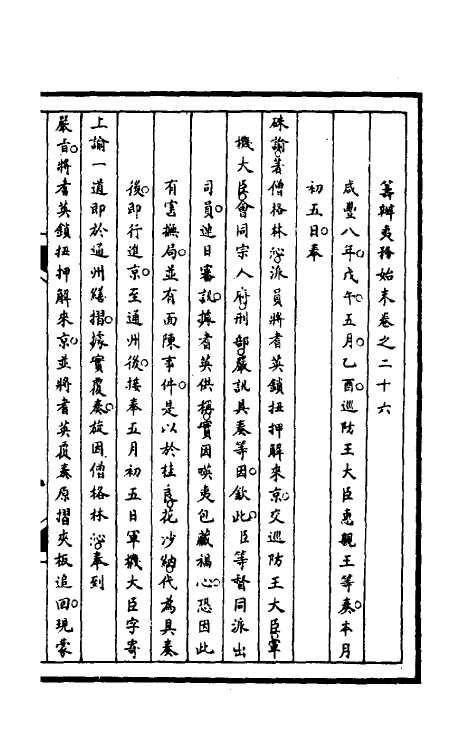 籌辦夷務始末卷之二十六
咸豐八年戊午五月乙酉巡防王大臣惠親王等奏本月
初五日奉
硃諭著僧格林沁派員將耆英鎖扭押解來京交巡防王大臣軍
機大臣會同宗人府刑部嚴訊具奏等因欽此臣等督同派出
司員連日審訊據耆英供稱實因嘆夷包藏禍心恐因此
有害撫局並有面陳事件是以於桂良花沙納代為具奏
後即行進京至通州後接奉五月初五日軍機大臣字寄
上諭一道即於通州繕摺據實覆奏旋因僧格林沁奉到
嚴旨將耆英鎖扭押解來京並將耆英覆奏原摺夾板追回現蒙